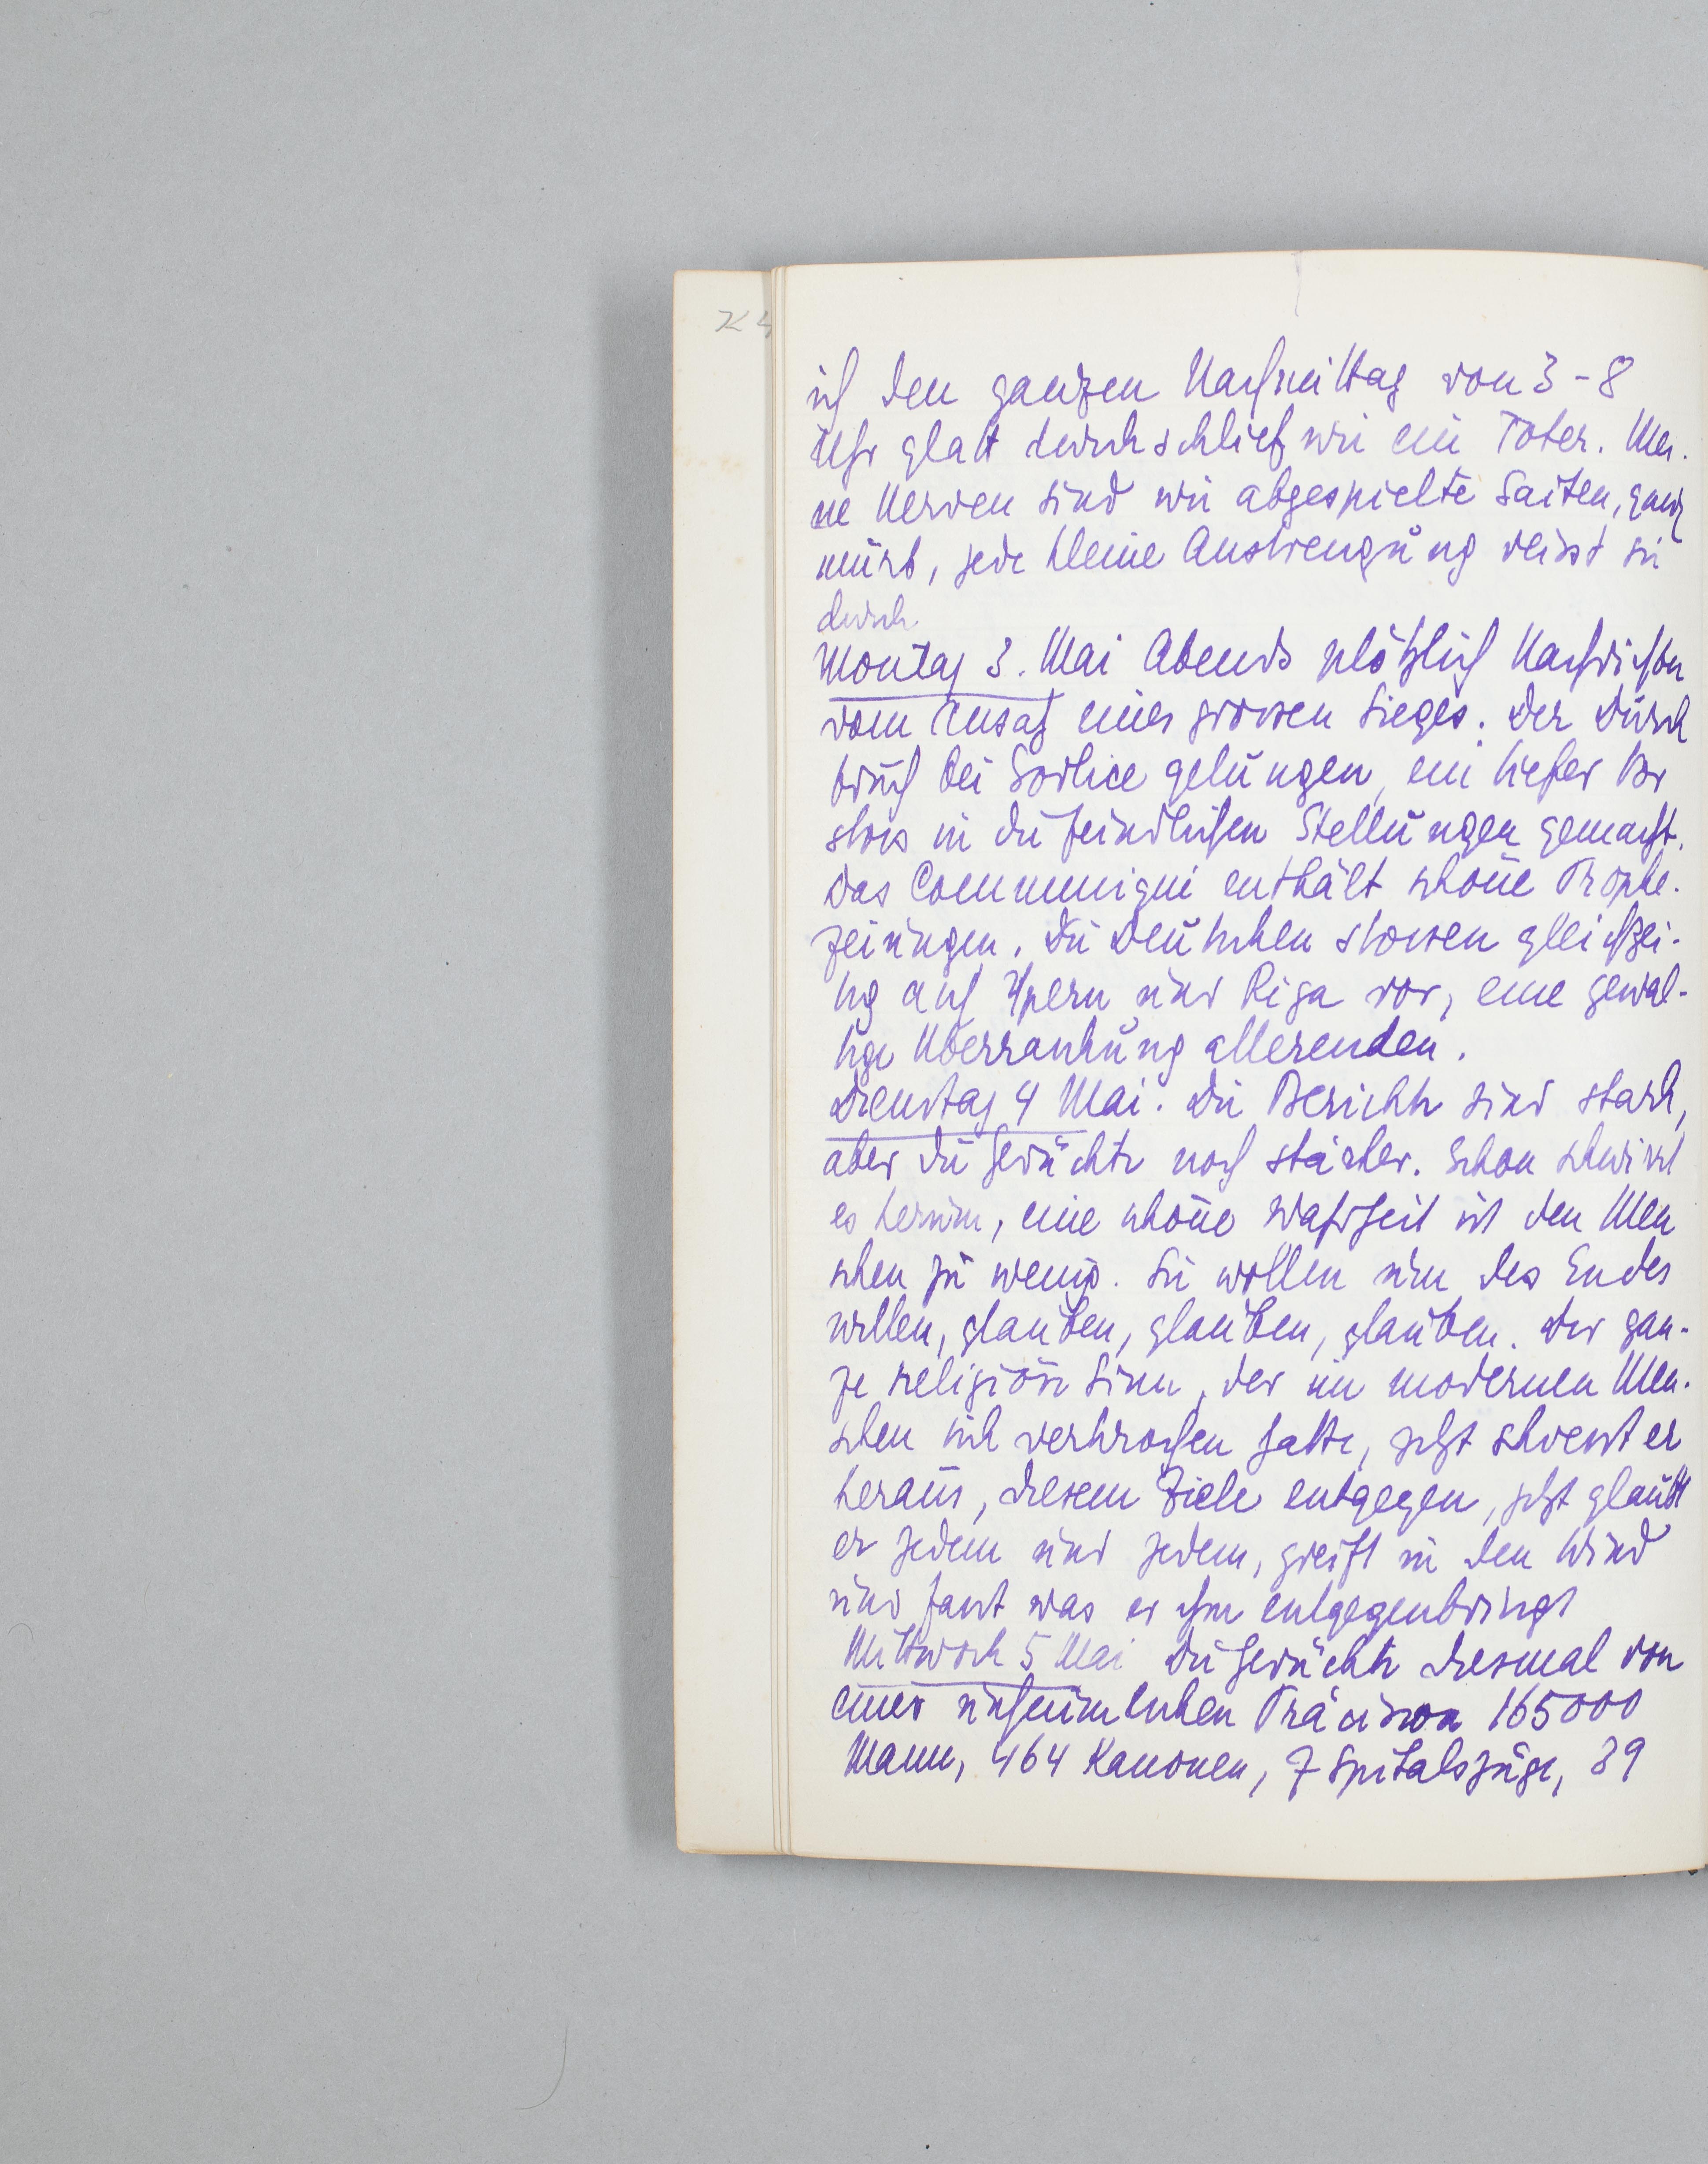 K 4
ich den ganzen Nachmittag von 3-8
Uhr glatt durchschlief wie ein Toter. Mei-
ne Nerven sind wie abgespielte Saiten, ganz
mürb, jede kleine Anstrengung reisst sie
durch
Montag 3. Mai Abends plötzlich Nachrichten
vom Ansatz eines grossen Sieges. Der Durch
bruch bei Gorlice gelungen, ein tiefer Vor
stoss in die feindlichen Stellungen gemacht.
Das Communiqué enthält schöne Prophe-
zeiungen. Die Deutschen stossen gleichzei-
tig auf Ypern und Riga vor, eine gewal-
tige Überraschung allerenden.
Dienstag 4 Mai. Die Berichte sind stark,
aber die Gerüchte noch stärker. Schon schwirrt
es herum, eine schöne Wahrheit ist den Men
schen zu wenig. Sie wollen um des Endes
willen, glauben, glauben, glauben. Der gan-
ze religiöse Sinn, der im modernen Men-
schen sich verkrochen hatte, jetzt strömt er
heraus, diesem Ziele entgegen, jetzt glaubt
er jedem und jedem, greift in den Wind
und fasst was er ihm entgegenbringt
Mittwoch 5 Mai Die Gerüchte diesmal von
einer unheimlichen Präcision 165000
Mann, 464 Kanonen, 7 Spitalszüge, 39